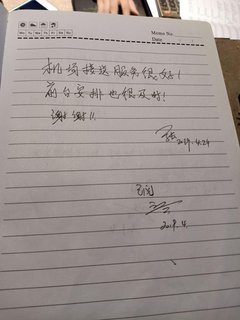 Memo No.
Date
Mo Tu We Th Fr Sa Su
机场接送服务很好!
前台安排也很及时!
谢谢!!
2019.4.24
已阅
2019.4.